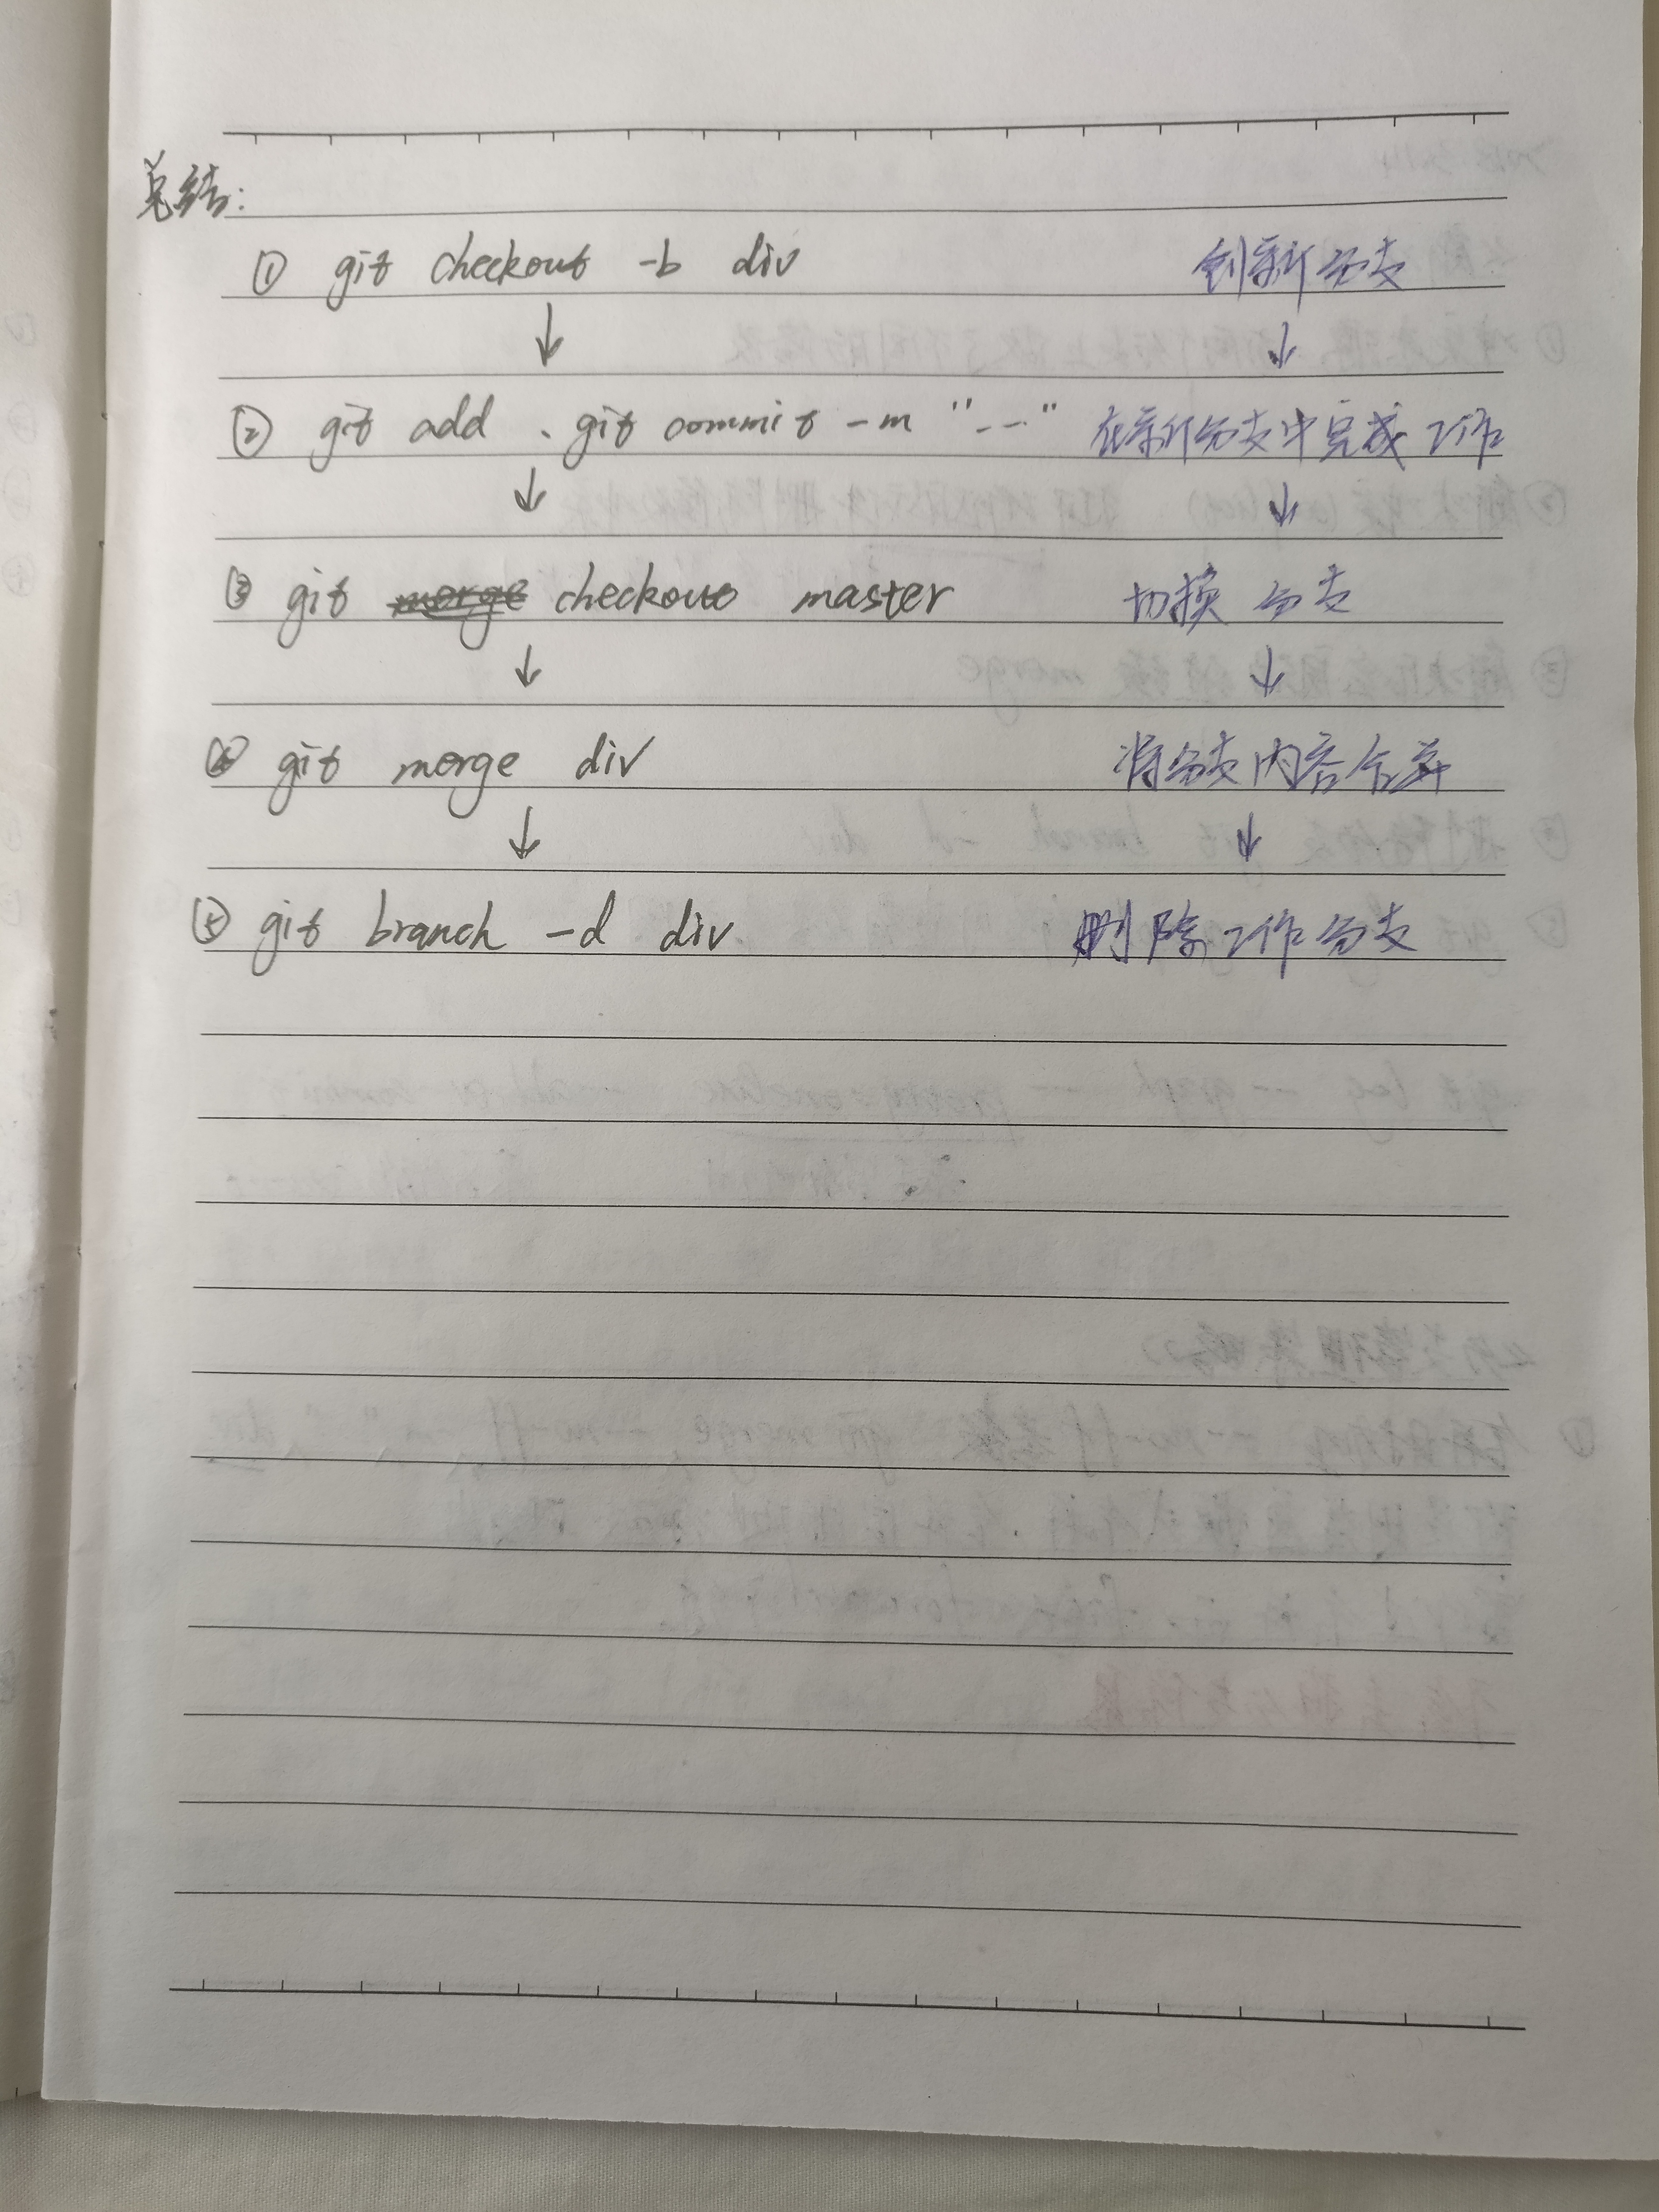 总结:
① git checkout -b div 创新分支
↓ ↓
② git add . git commit -m "---" 在新分支中完成工作
↓ ↓
③ git checkout master 切换 分支
↓ ↓
④ git merge div 将分支内容合并
↓ ↓
⑤ git branch -d div 删除工作分支